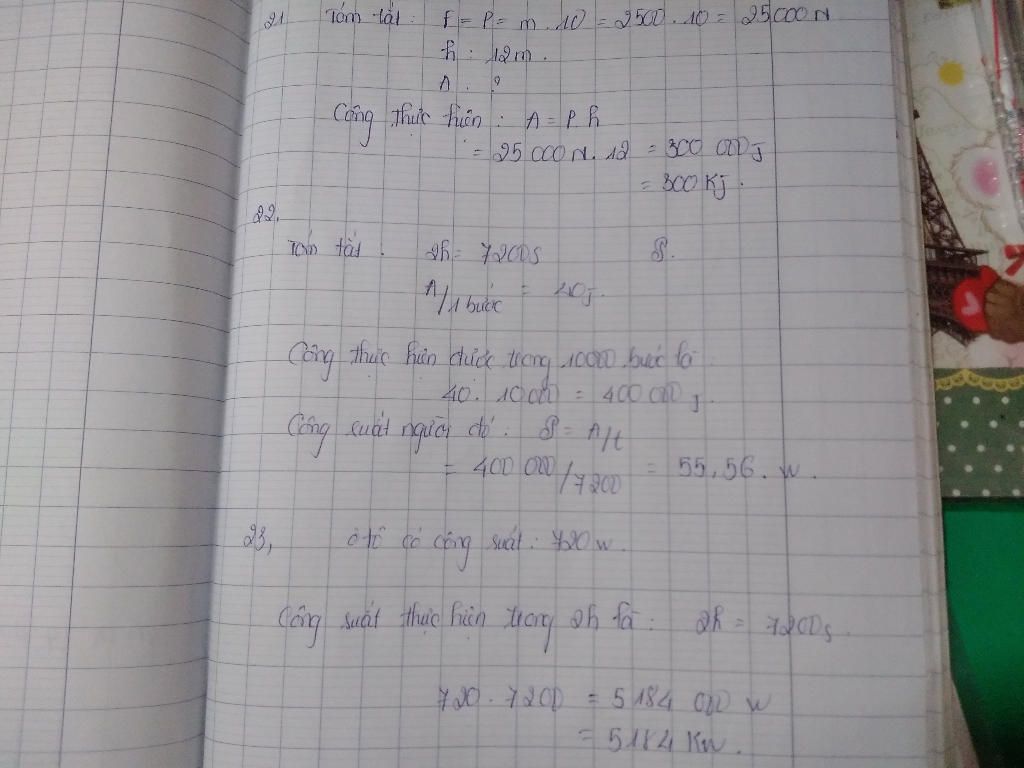 21 Tóm tắt: F = P = m . 10 = 2500 . 10 = 25000 N
h : 12m.
A . ?
Công thực hiện : A = P. h
= 25 000 N. 12 = 300 000 J
= 300 KJ.
22,
Tóm tắt . 2h = 7200s P.
A/1 bước = 40 J.
Công thực hiện được trong 10000 bước là
40. 10 000 = 400 000 J.
Công suất người đó : P = A/t
= 400 000 /7200 = 55,56. w.
23, ô tô có công suất : 720 w.
Công suất thực hiện trong 2h là : 2h = 7200s.
720 . 7200 = 5184 000 w
= 5184 Kw.